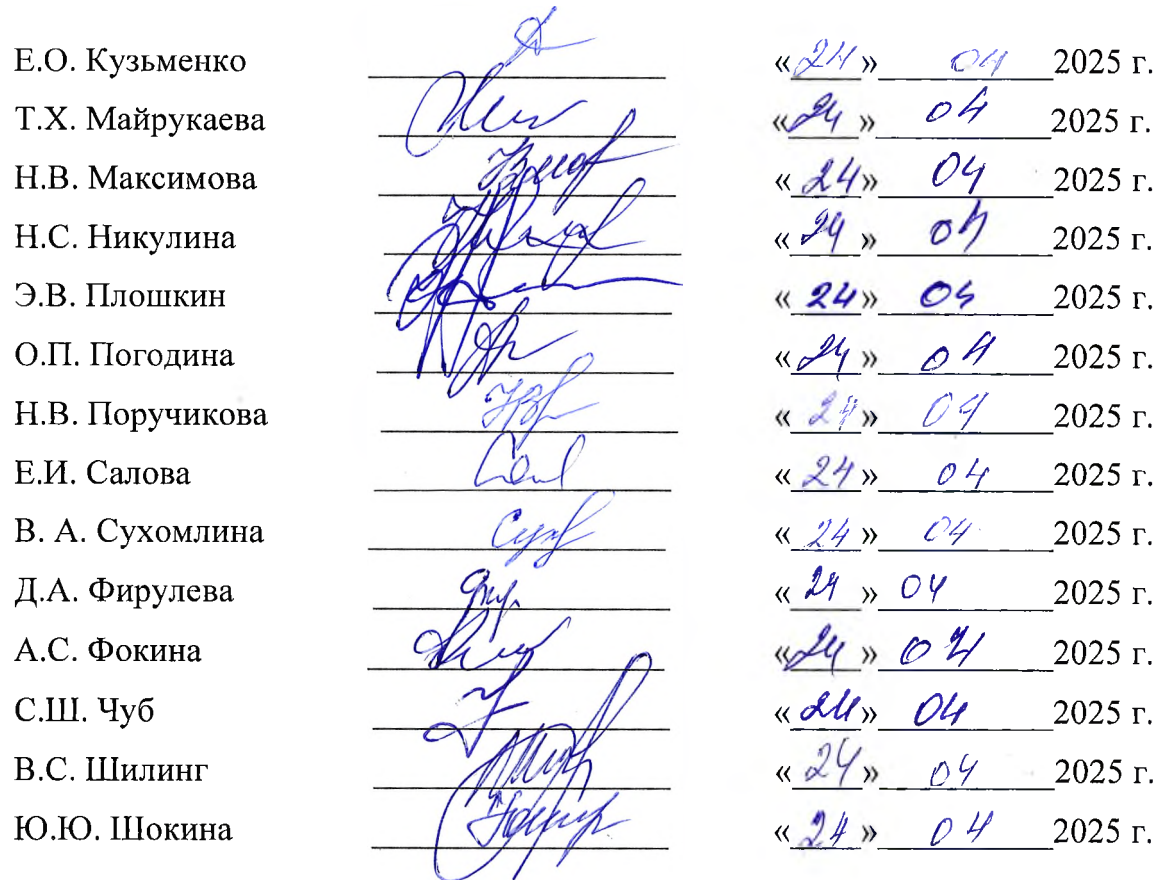 Е.О. Кузьменко «24» 04 2025 г.
Т.Х. Майрукаева «24» 04 2025 г.
Н.В. Максимова «24» 04 2025 г.
Н.С. Никулина «24» 04 2025 г.
Э.В. Плошкин «24» 04 2025 г.
О.П. Погодина «24» 04 2025 г.
Н.В. Поручикова «24» 04 2025 г.
Е.И. Салова «24» 04 2025 г.
В. А. Сухомлина «24» 04 2025 г.
Д.А. Фирулева «24» 04 2025 г.
А.С. Фокина «24» 04 2025 г.
С.Ш. Чуб «24» 04 2025 г.
В.С. Шилинг «24» 04 2025 г.
Ю.Ю. Шокина «24» 04 2025 г.